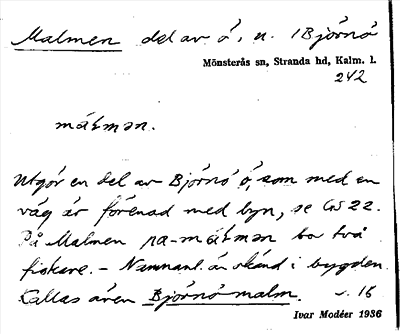 Malmen del av ö, n. i Björnö
Mönsterås sn, Stranda hd, Kalm. l.
242
Utgör en del av Björnö ö, som med en
väg är förenad med byn, se GS 22.
På Malmen bo två
fiskare. – Namnet är okänd i bygden.
Kallas även Björnö malm. 16
Ivar Modéer 1936